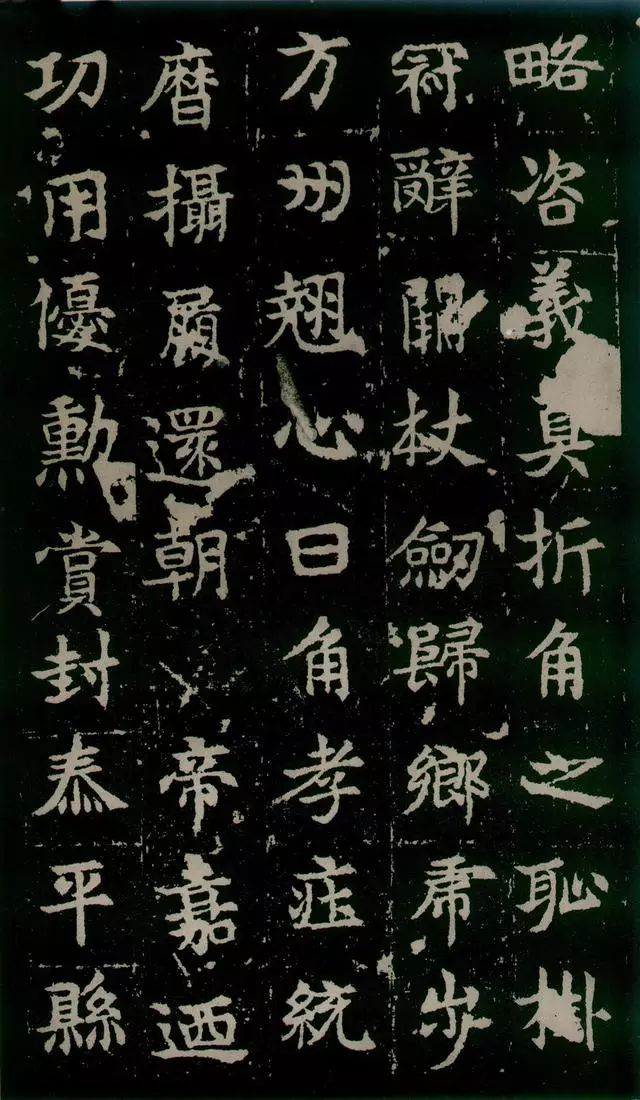 略咨義真折角之恥掛
冠辭闕杖劒歸鄉虎步
方州翹心日角孝莊統
曆攝屐還朝帝嘉迺
功用優勳賞封泰平縣